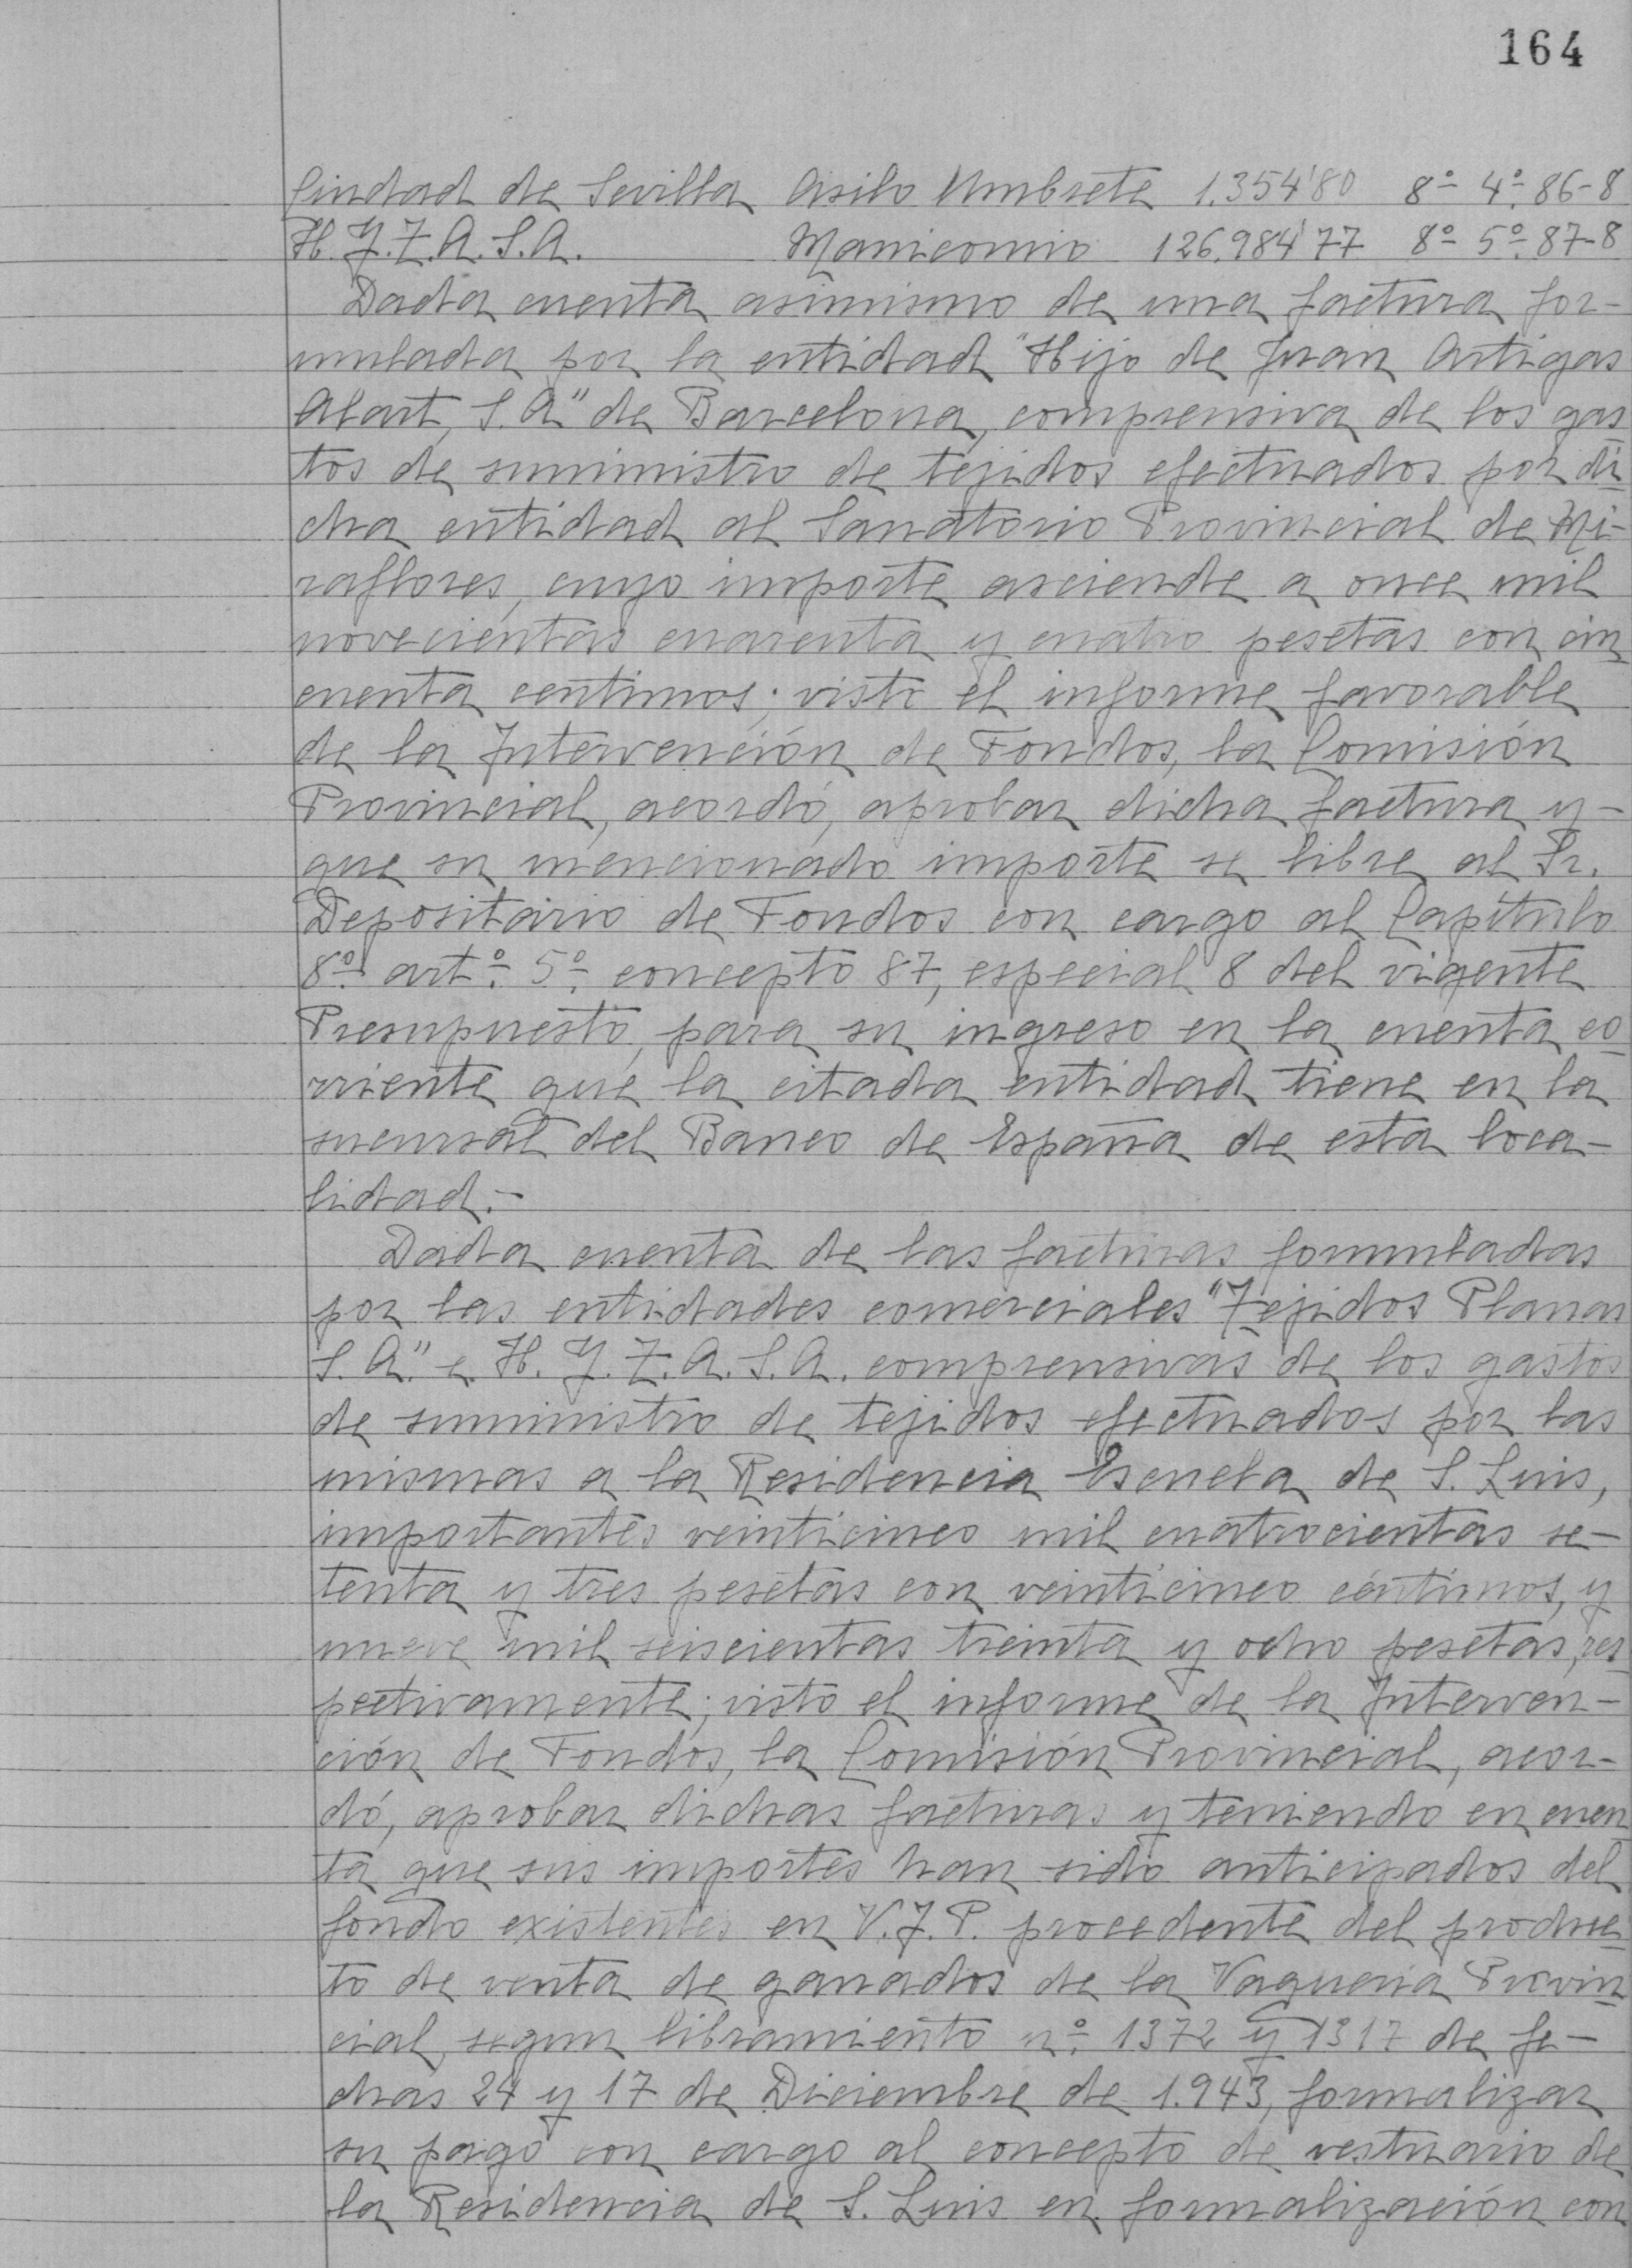 164
Ciudad de Sevilla Asilo Umbrete 1.354'80 8º- 4º. 86-8
H. Y. T. A. S. A. Manicomio 126.984'77 8º- 5º. 87-8
Dada cuenta asimismo de una factura for-
mulada por la entidad "Hijo de Juan Artigas
Alart, S. A" de Barcelona, comprensiva de los gas
tos de suministro de tejidos efectuados por di
cha entidad al Sanatorio Provincial de Mi-
raflores, cuyo importe asciende a once mil
novecientas cuarenta y cuatro pesetas con cin
cuenta centimos; visto el informe favorable
de la Intervención de Fondos, la Comisión
Provincial, acordó, aprobar dicha factura y-
que su mencionado importe se libre al Sr.
Depositario de Fondos con cargo al Capítulo
8º. artº. 5º. concepto 87, especial 8 del vigente
Presupuesto, para su ingreso en la cuenta co
rriente que la citada entidad tiene en la
sucursal del Banco de España de esta loca-
lidad.-
Dada cuenta de las facturas formuladas
por las entidades comerciales "Tejidos Planas
S. A." e H. Y. T. A. S. A. comprensivas de los gastos
de suministro de tejidos efectuados por las
mismas a la Residencia Escuela de S. Luis,
importantes veinticinco mil cuatrocientas se-
tenta y tres pesetas con veinticinco céntimos, y
nueve mil seiscientas treinta y ocho pesetas, res
pectivamente; visto el informe de la Interven-
ción de Fondos, la Comisión Provincial, acor-
dó, aprobar dichas facturas y teniendo en cuen
ta que sus importes han sido anticipados del
fondo existentes en V. I. P. procedente del produc
to de venta de ganados de la Vaqueria Provin
cial, segun libramiento nº. 1372 y 1317 de fe-
chas 24 y 17 de Diciembre de 1.943, formalizar
su pago con cargo al concepto de vestuario de
la Residencia de S. Luis en formalización con